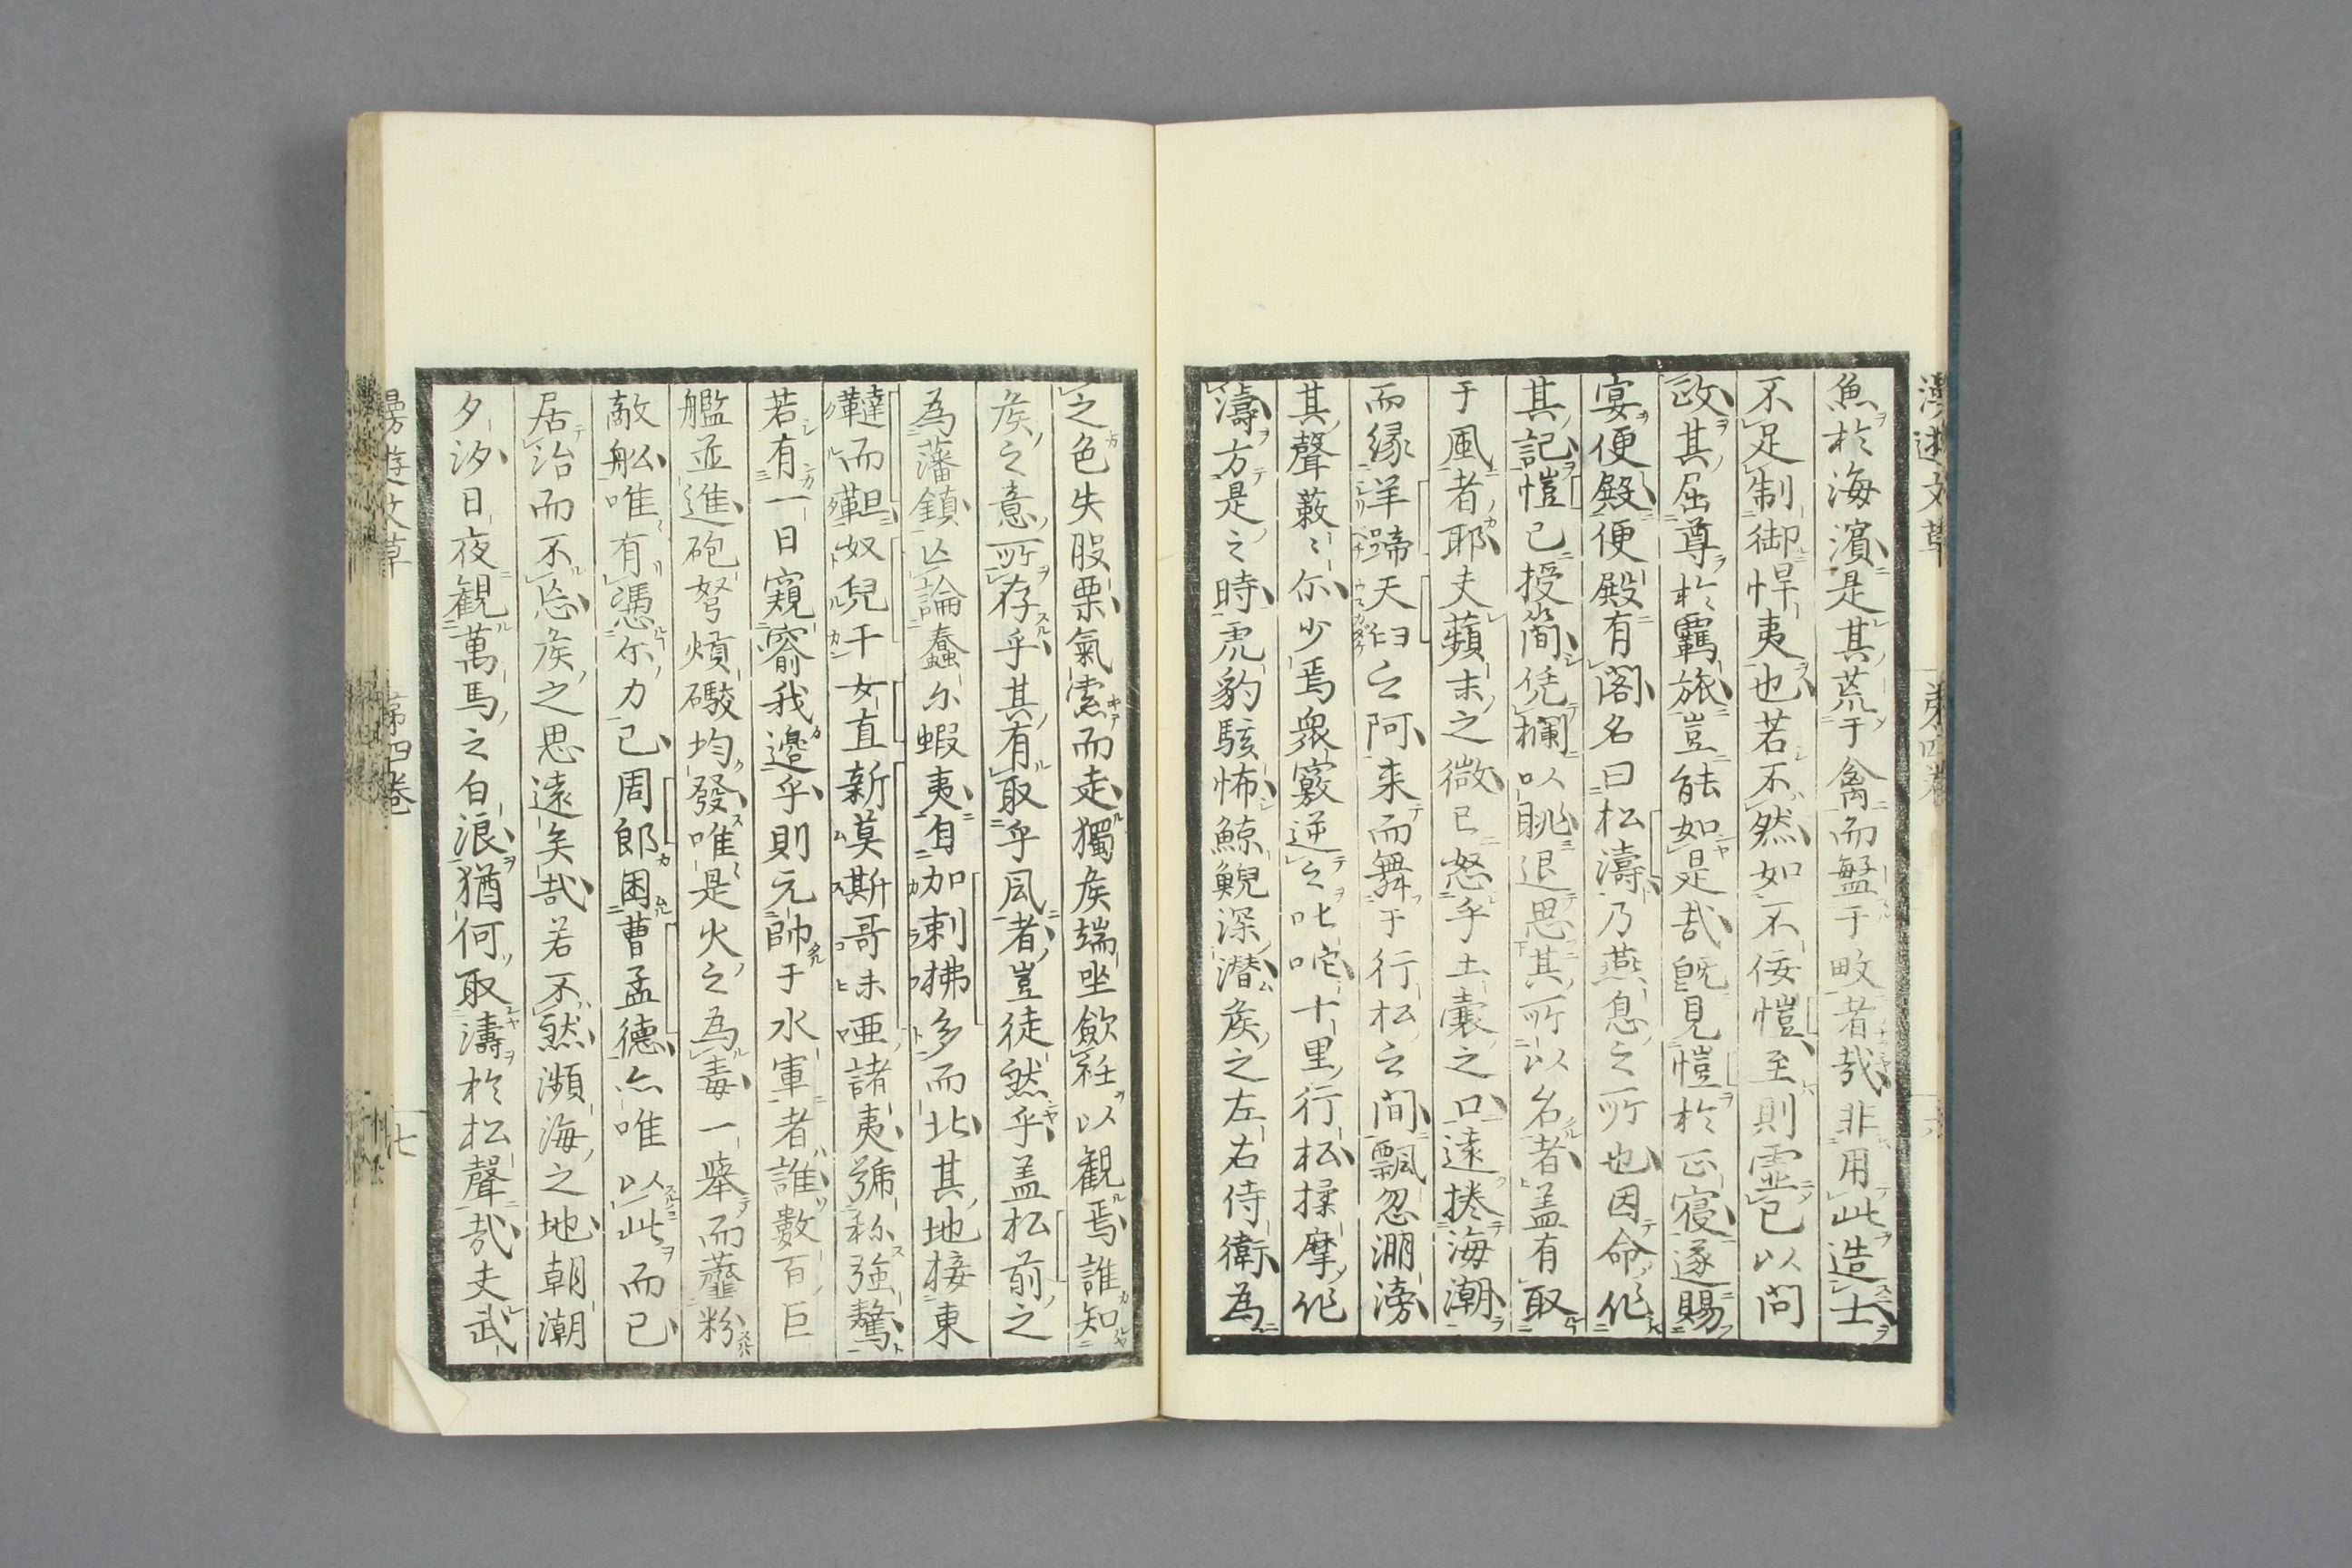 魚於海濱是其荒于禽而盤于畋者哉非用此造士
不足制御悍夷也若不然如不佞愷至則霊已以問
政其屈尊於覊旅豈能如是哉既見愷於正寝遂賜
宴便殿便殿有閣名曰松濤乃燕息之所也因命作
其記愷已授簡凭欄以眺退思其所以名者盖有取
于風者耶夫蘋末之微已怒乎土嚢之口遠捲海潮
而縁羊蹄天臼之阿来而舞于行松之間飄忽淜滂
其聲蔌〻尓少焉衆竅逆之叱咤十里行松揉摩作
濤方是之時虎豹駭怖鯨鯢深潜矦之左右侍衛為
之色失股栗氣索而走獨矦端坐斂衽以観焉誰知
矦之意所存乎其有取乎風者豈徒然乎盖松前之
為藩鎮亾論蠢尓蝦夷自加剌拂多而北其地接東
韃而靼奴兒干女直新莫斯哥未唖諸夷號称強驁
若有一日窺窬我邊乎則元帥于水軍者誰數百巨
艦並進砲弩熕礮均發唯是火之為毒一舉而虀粉
敵舩唯有憑尓力已周郎困曹孟德亦唯以此而已
居治而不忘矦之思遠矣哉若不然瀕海之地朝潮
夕汐日夜観萬馬之白浪猶何取濤於松聲哉夫武
漫遊文草
第四卷
七